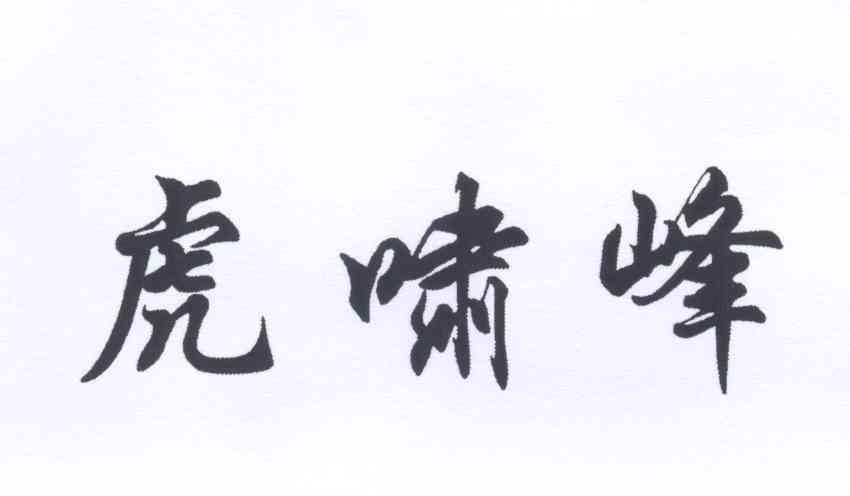 虎啸峰